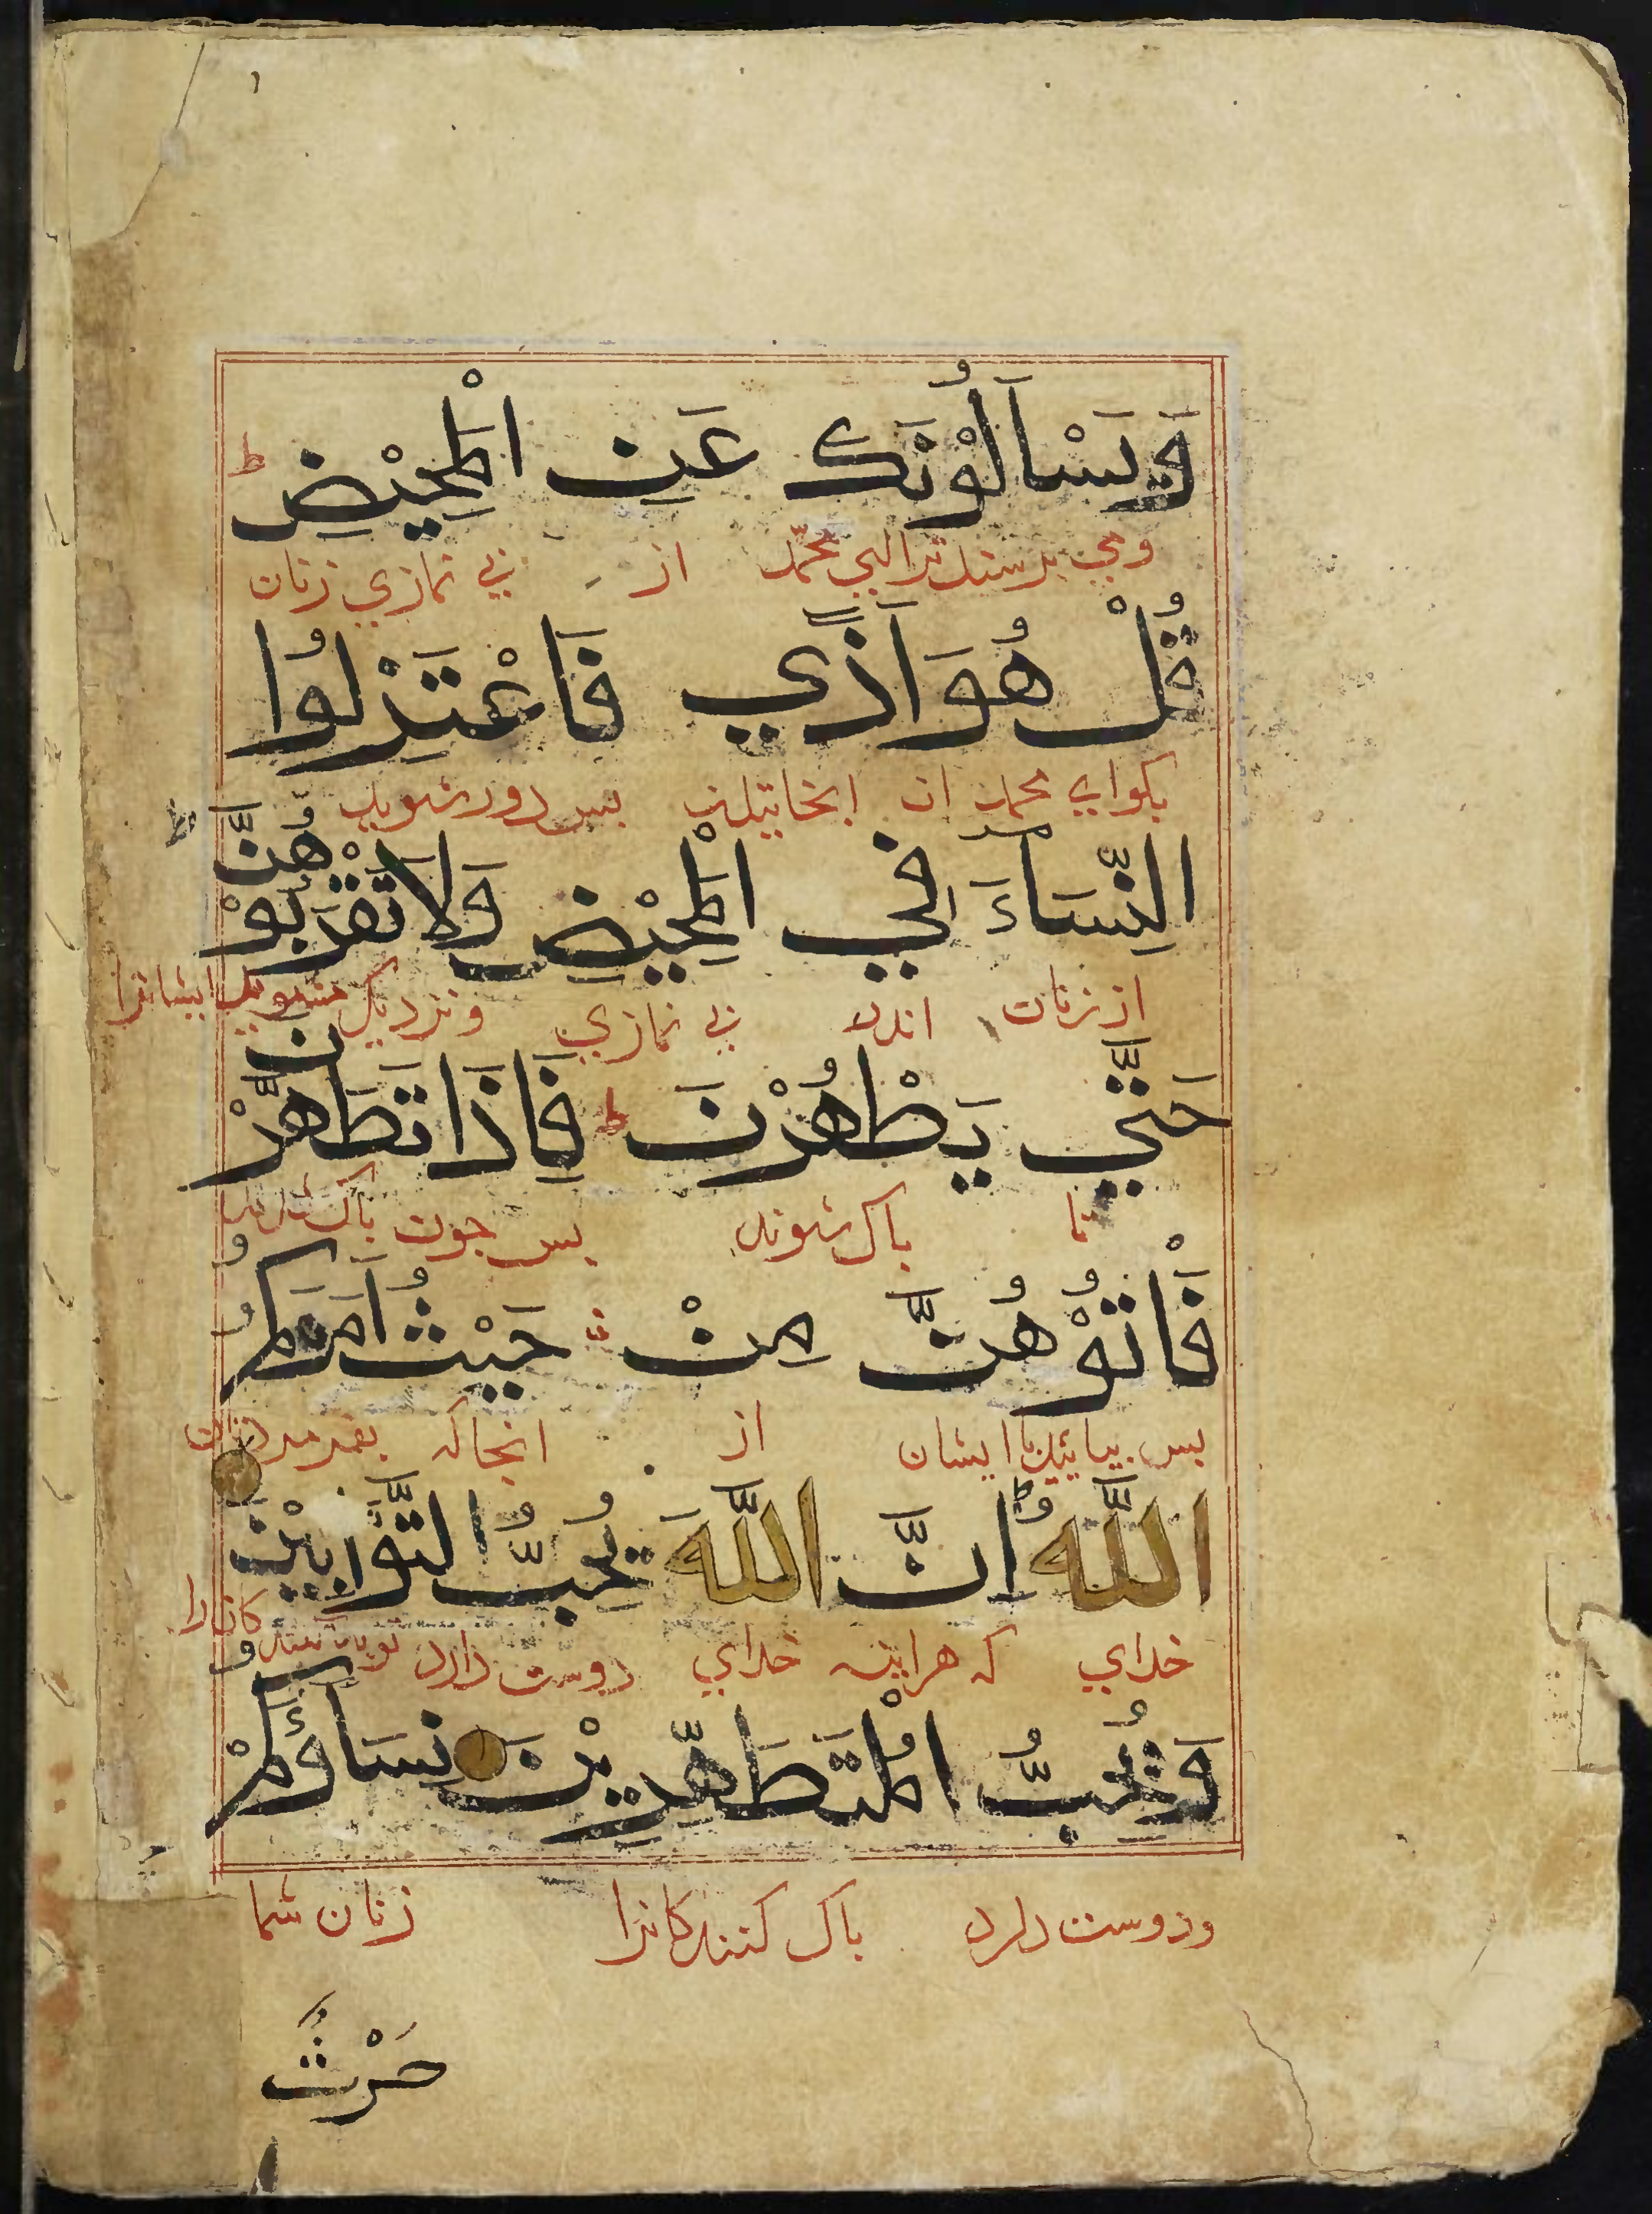 وَيَسْـَٔلُوْنَكَ عَنِ الْمَحِيْضِ ط
ومي برسند ترا ای محمّد از بي نمازي زنان
قُلْ هُوَ اَذًي فَاعْتَزِلُوا
بكو اي محمد ان بس دور شويد
النِّسَآءَ فِي الْمَحِيْضِ وَلَا تَقْرَبُوْهُنَّ
از زنان اندر بي نمازي ونزديك مشويد ايشانرا
حَتّٰي يَطْهُرْنَ ط فَاِذَا تَطَهَّرْنَ
تا باك شوند بس جون باك شدند
فَاْتُوْهُنَّ مِنْ حَيْثُ اَمَرَكُمُ
بس بيائيد با ايشان از انجاكه
اللّٰهُ ط اِنَّ اللّٰهَ يُحِبُّ التَّوَّابِيْنَ
خداي كه هراينه خداي دوست دارد
وَيُحِبُّ الْمُتَطَهِّرِيْنَ نِسَآؤُكُمْ
ودوست دارد باك كنندكانرا زنان شما
حَرْثٌ